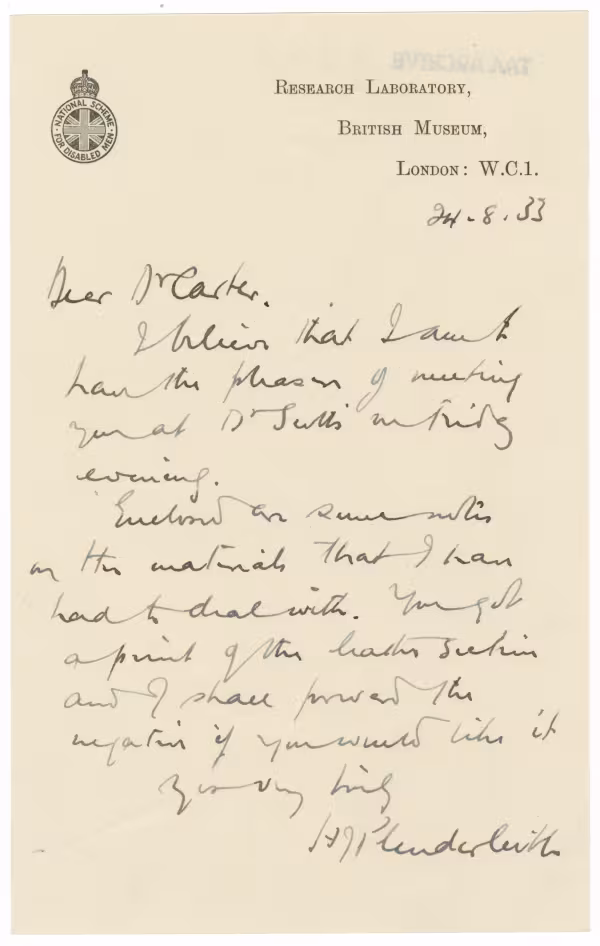 TAA ARCHIVE
NATIONAL SCHEME
FOR DISABLED MEN
RESEARCH LABORATORY,
BRITISH MUSEUM,
LONDON: W.C.1.
24.8.33
Dear Dr Carter.
I believe that I am to
have the pleasure of meeting
you at Dr Scott's on Friday
evening.
Enclosed are some notes
on the materials that I have
had to deal with. You got
a print of the leather section
and I shall forward the
negative if you would like it
Yrs very truly
HJPlenderleith